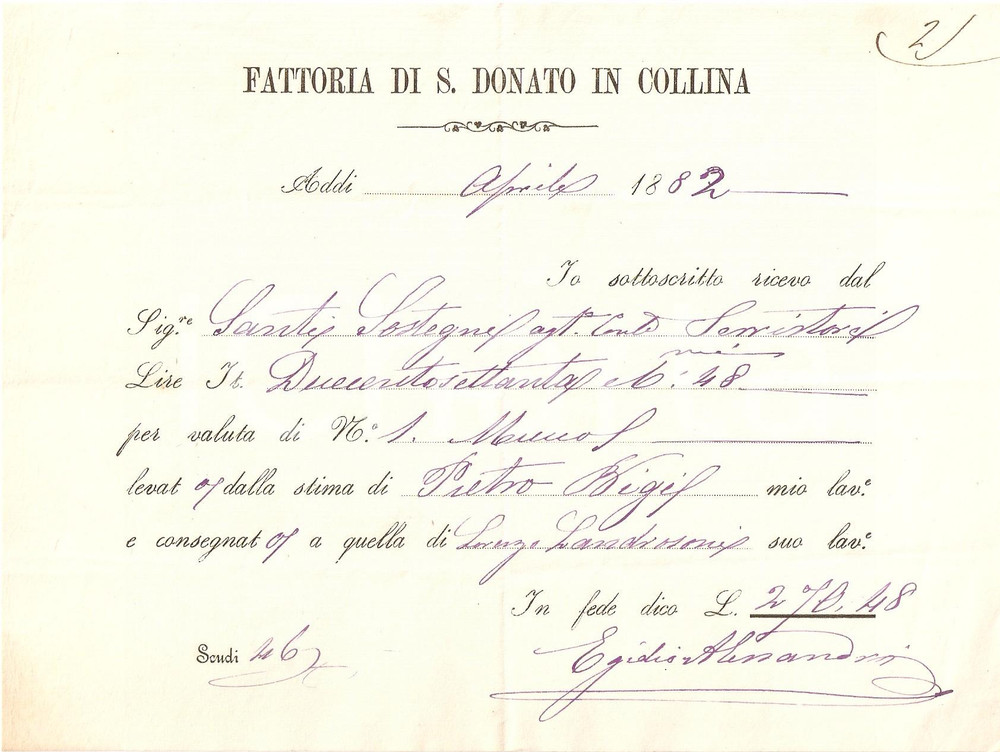 2
FATTORIA DI S. DONATO IN COLLINA
Addì Aprile 1882
Io sottoscritto ricevo dal
Sig.re Santi Sostegni agt. Conte Serristori
Lire It. Duecentosettanta e C.mi 48
per valuta di N.o 1. Mucco
levat o dalla stima di Pietro Bigi mio lav.e
e consegnat o a quella di Lorenzo suo lav.e
In fede dico L. 270.48
Scudi 46
Egidio Alessandri